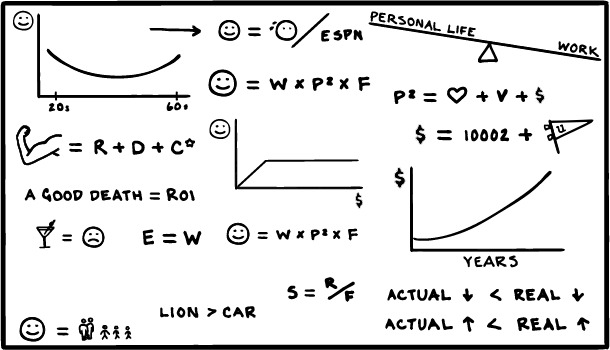 20s 60s
= / ESPN
PERSONAL LIFE WORK
= W x P² x F
P² = ♡ + V + $
= R + D + C☆
$
$ = 10002 + U
A GOOD DEATH = ROI
$
YEARS
=
E = W
= W x P² x F
S = R/F
LION > CAR
ACTUAL ↓ < REAL ↓
ACTUAL ↑ < REAL ↑
=